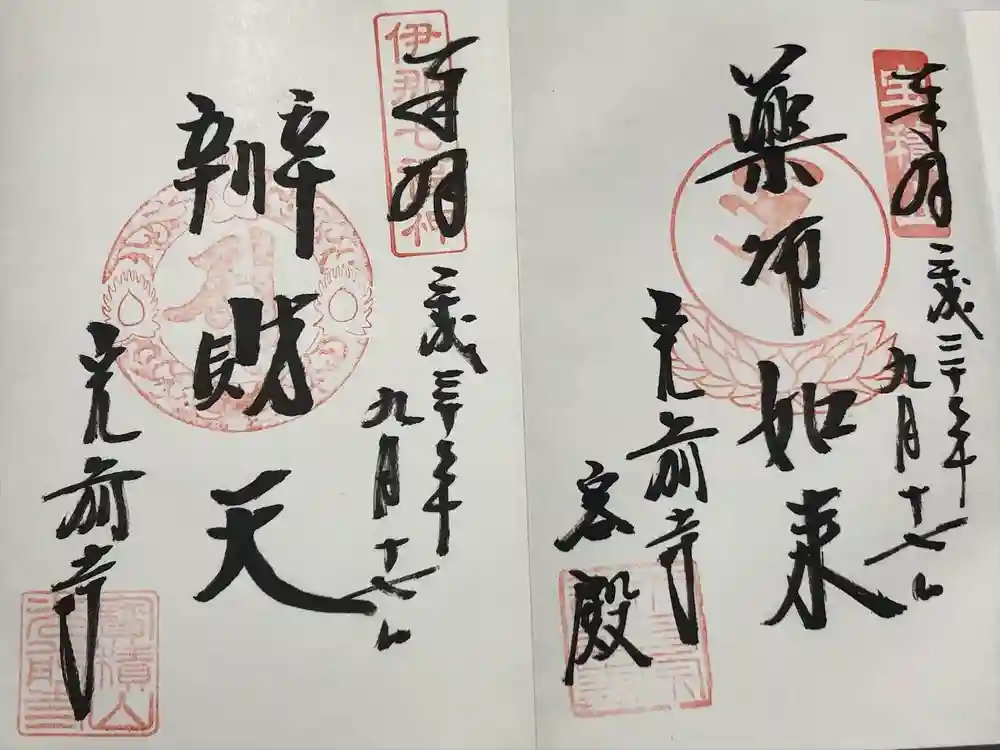 奉拝
宝積山
平成三十年
九月十七日
薬師如来
光前寺
客殿
奉拝
伊那七福神
平成三十年
九月十七日
辨財天
光前寺
宝積山
光前寺